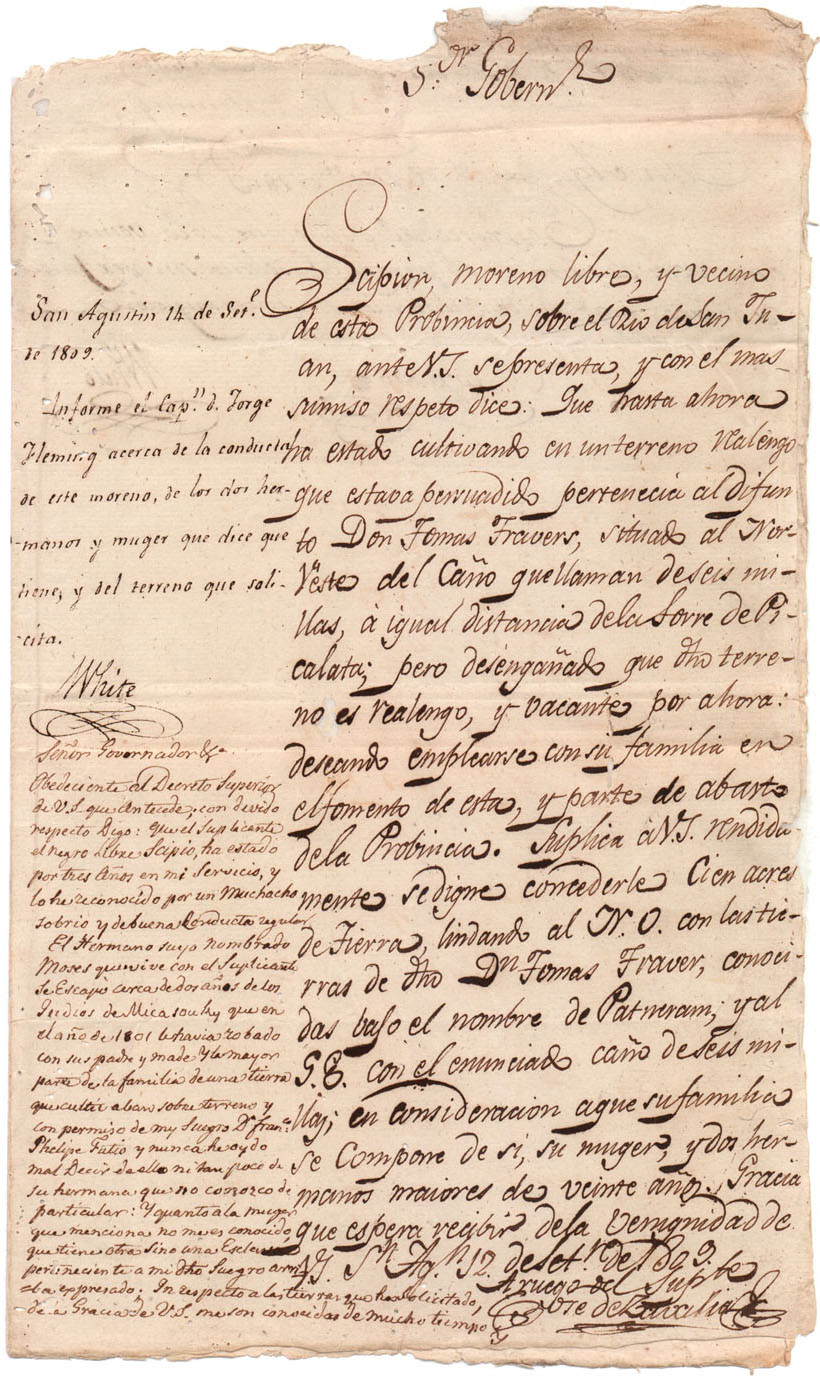 S.or Gobern.r
Scipion, moreno libre, y vecino
de esta Probincia, sobre el Rio de San Ju-
an, ante V.S. se presenta, y con el mas
sumiso respeto dice: Que hasta ahora
ha estado cultivando en un terreno realengo
que estava persuadido pertenecia al difun-
to Don Tomas Travers, situado al Nor-
veste del Caño que llaman de seis mi-
llas, à igual distancia de la Torre de Pi-
calata; pero desengañado que dho terre-
no es realengo, y vacante por ahora:
deseando emplearse con su familia en
el fomento de esta, y parte de abasto
de la Probincia. Suplica à V.S. rendida-
mente se digne concederle Cien acres
de Tierra, lindando al N.O. con las tie-
rras de dho Dn Tomas Traver, conoci-
das bajo el nombre de Patneram; y al
S.E. con el enunciado caño de seis mi-
llas; en consideracion a que su familia
se Compone de si, su muger, y dos her-
manos maiores de veinte años. Gracia
que espera recibir de la venignidad de
V.S. Sn Ag.n 12 de Set.re de 1809
A ruego del Sup.te
San Agustin 14 de Set.e
de 1809.
Informe el Cap.n d. Jorge
Fleming acerca de la conducta
de este moreno, de los dos her-
manos y muger que dice que
tiene, y del terreno que soli-
cita.
White
Señor Governador &a.
Obedeciente al Decreto Superior
de V.S. que Antecede; con devido
respecto Digo: que el Suplicante
el negro libre Scipio, ha estado
por tres Años en mi Servicio, y
lo he reconocido por un Muchacho
sobrio y de buena Conducta regular
El Hermano suyo nombrado
Moses que vive con el Suplicante
se Escapo cerca de dos años de los
Indios de Micasouky que en
el año de 1801 le havia robado
con sus padre y made y la mayor
parte de la familia de una tierra
que cultivaban sobre terreno y
con permiso de my Suegro Dn Fran.co
Phelipe Fatio y nunca he oydo
mal Decir de ello ni tan poco de
su hermana que no conozco de
particular: Y quanto a la muger
que menciona no me es conocido
que tiene otra Sino una Esclava
perteneciente a mi dho Suegro arri-
ba expresado: In respecto a las tierras que ha solicitado,
de a Gracia de V.S. me son conocidas de mucho tiempo
y